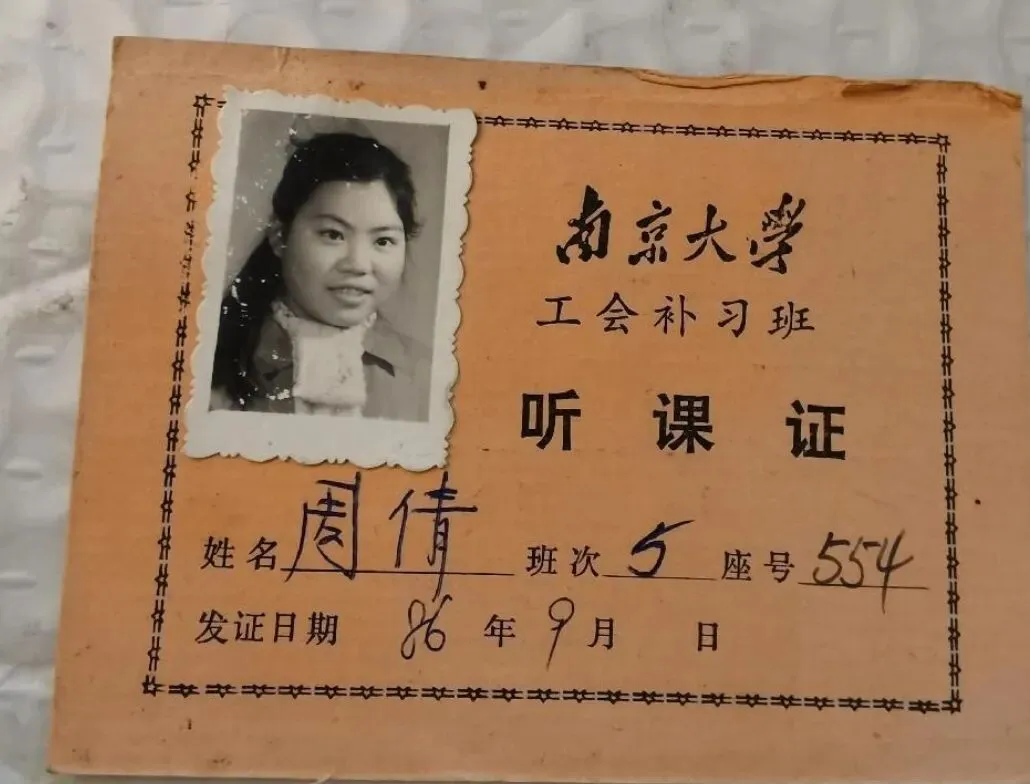 南京大學
工会补习班
听课证
姓名 周倩 班次 5 座号 554
发证日期 86 年 9 月 日